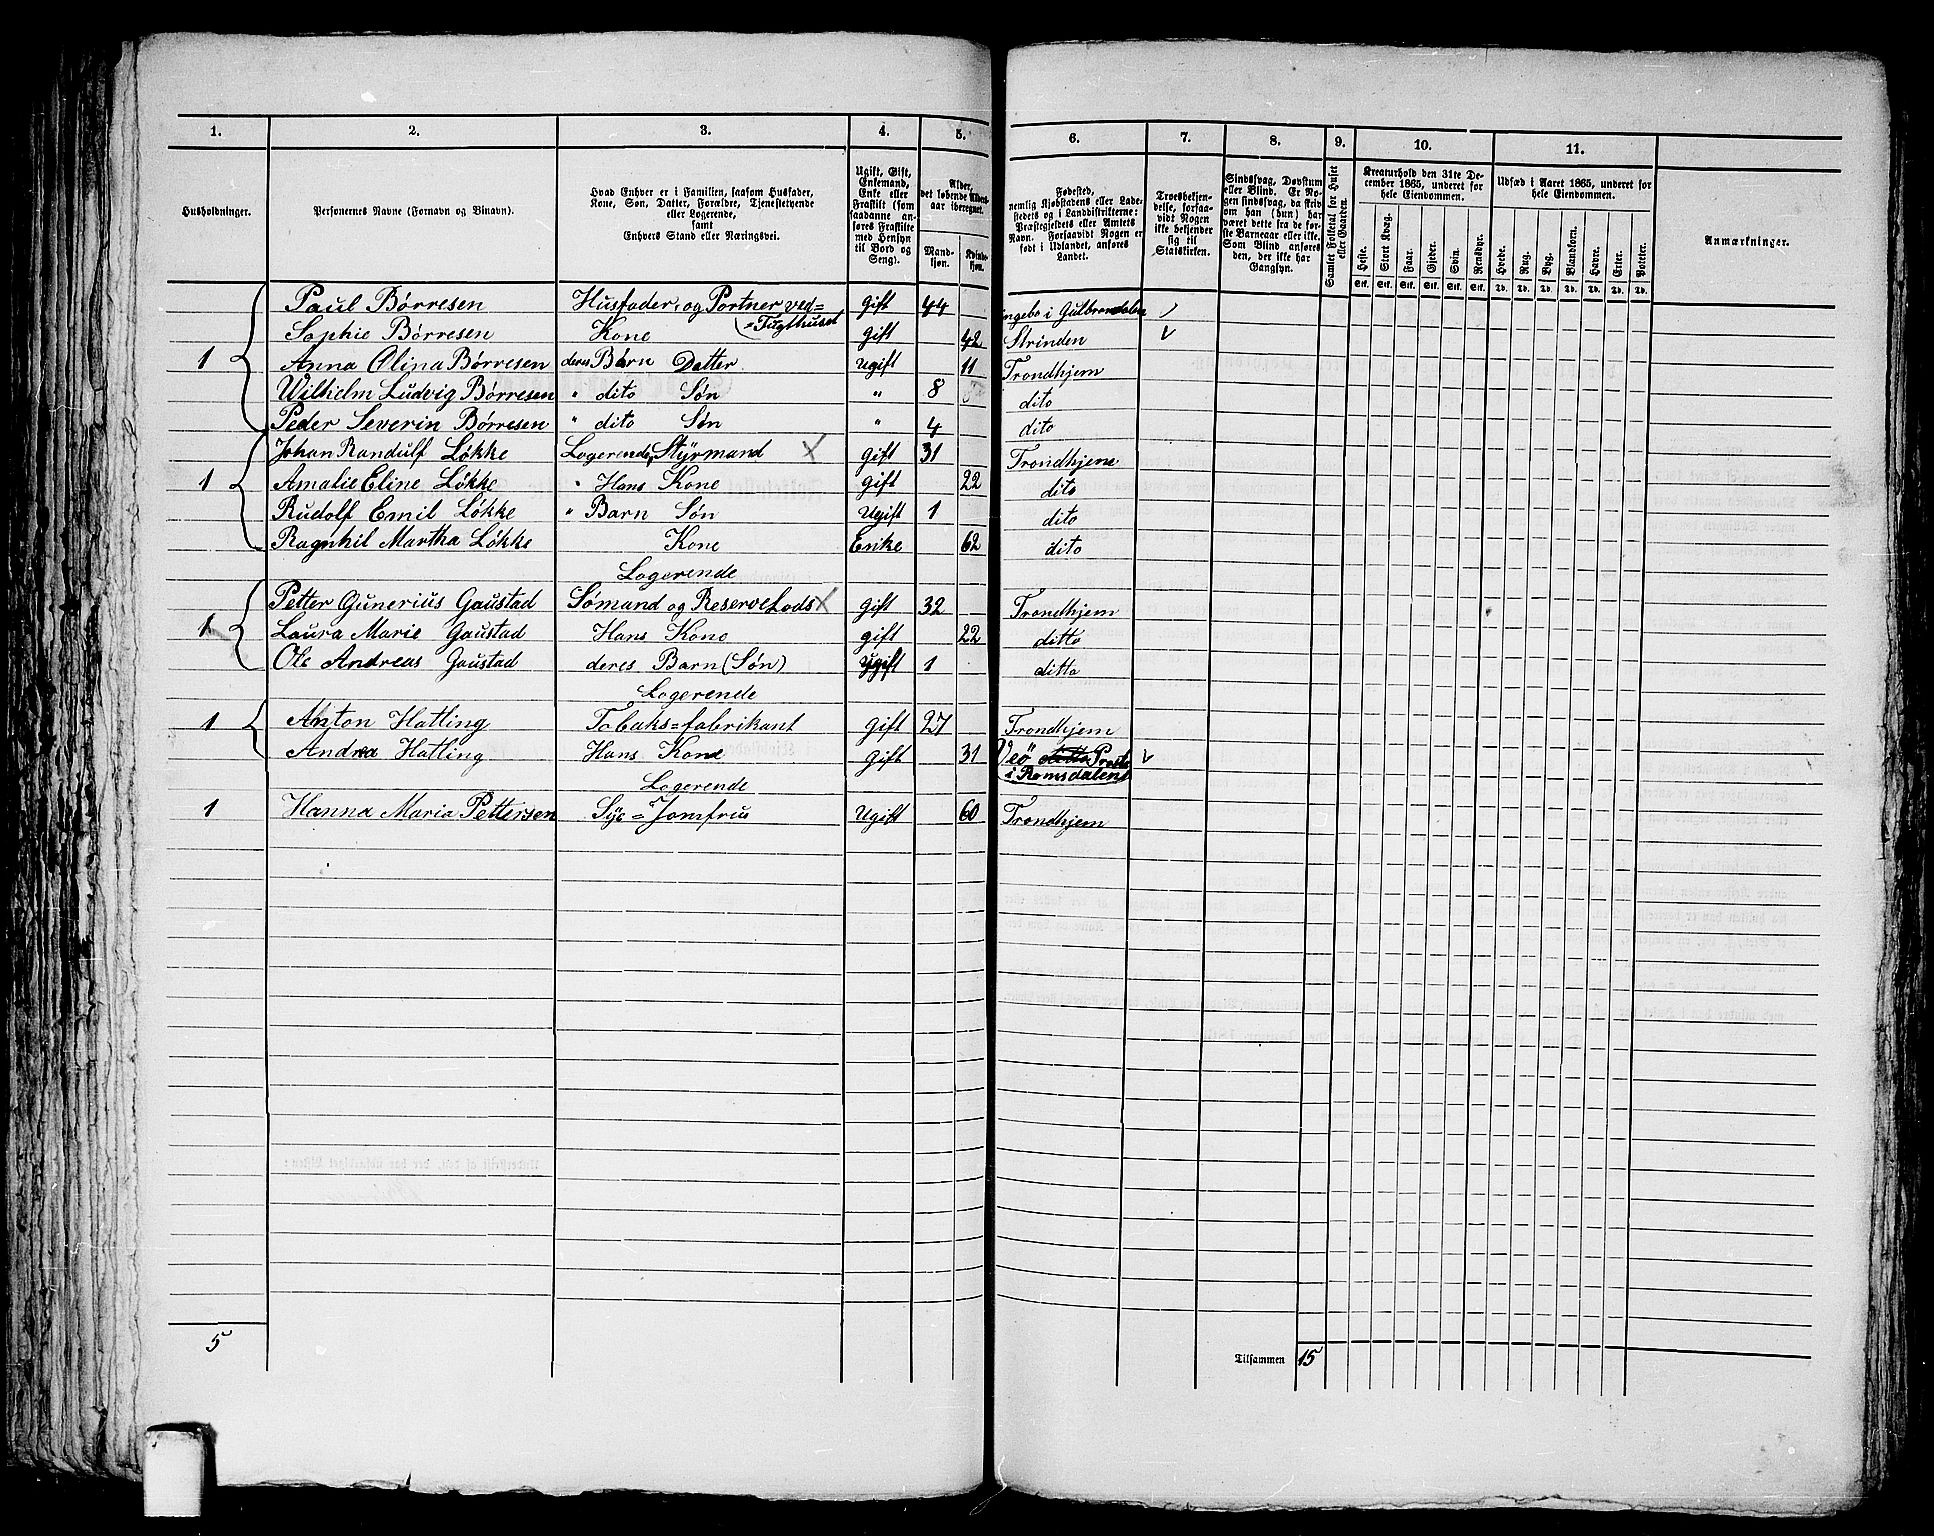 1. 2. 3. 4. 5. 6. 7. 8. 9. 10. 11.
Husholdninger.
Personernes Navne (Fornavn og Binavn).
Hvad Enhver er i Familien, saasom Husfader,
Kone, Søn, Datter, Forældre, Tjenestetyende
eller Logerende,
samt
Enhvers Stand eller Næringsvei.
Ugift, Gift,
Enkemand,
Enke eller
Fraskilt (som
saadanne an-
føres Fraskilte
med Hensyn
til Bord og
Seng).
Alder,
det løbende Alders-
aar iberegnet.
Mand-
kjøn.
Kvinde-
kjøn.
Fødested,
nemlig Kjøbstadens eller Lade-
stedets og i Landdistrikterne:
Præstegjeldets eller Amtets
Navn. Forsaavidt Nogen er
født i Udlandet, anføres
Landet.
Troesbekjen-
delse, forsaa-
vidt Nogen
ikke bekjender
sig til
Statskirken.
Sindssvag, Døvstum
eller Blind. Er No-
gen sindssvag, da skriv
om han (hun) har
været dette fra de før-
ste Barneaar eller ikke.
Som Blind anføres
den, der ikke har
Gangsyn.
Samlet Folketal for Huset
eller Gaarden.
Kreaturhold den 31te De-
cember 1865, underet for
hele Eiendommen.
Heste. Stort Kvæg. Faar. Gjeder. Svin. Rensdyr.
Stk. Stk. Stk. Stk. Stk. Stk.
Udsæd i Aaret 1865, underet for
hele Eiendommen.
Hvede. Rug. Byg. Blandkorn. Havre. Erter. Poteter.
Td. Td. Td. Td. Td. Td. Td.
Anmærkninger.
Paul Børresen Husfader, og Portner ved= Gift 44 ingebo i Gulbrandalen
=Tugthuset
Sophie Børresen Kone Gift 42 Strinden
1 Anna Olina Børresen deres Barn Datter Ugift 11 Trondhjem
Wilhelm Ludvig Børresen " dito Søn " 8 dito
Peder Severin Børresen " dito Søn " 4 dito
Johan Randulf Løkke Logerende, Styrmand X Gift 31 Trondhjem
1 Amalie Eline Løkke " Hans Kone gift 22 dito
Rudolf Emil Løkke " Barn Søn Ugift 1 dito
Ragnhil Martha Løkke Kone Enke 62 dito
Logerende
Petter Gunerius Gaustad Sømand og Reservelods X Gift 32 Trondhjem
1 Laura Marie Gaustad Hans Kone gift 22 ditto
Ole Andreas Gaustad deres Barn (Søn) Ugift 1 ditto
Logerende
1 Anton Hatling Tobaks=fabrikant Gift 27 Trondhjem
Andrea Hatling Hans Kone Gift 31 Veö ditto
i Romsdalen
Logerende
1 Hanna Maria Pettersen Sye=Jomfru Ugift 60 Trondhjem
5 Tilsammen 15